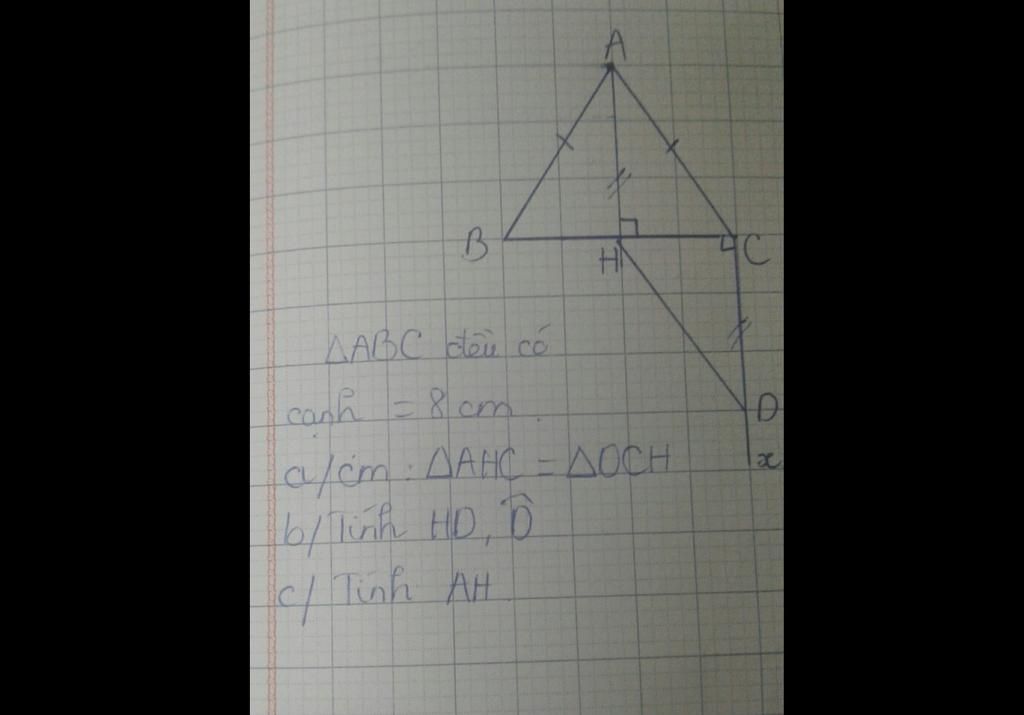 A
B
H
C
ΔABC đều có
D
cạnh = 8 cm.
x
a/ cm : ΔAHC = ΔDCH
b/ Tính HD, D̂
c/ Tính AH